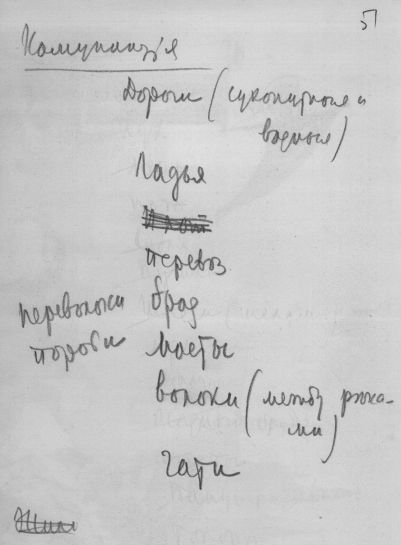 51
Комуникація
Дороги (сухопутные и
водные)
Ладья
перевоз
брод
переволоки
пороги
мосты
волоки (между река-
ми)
гати